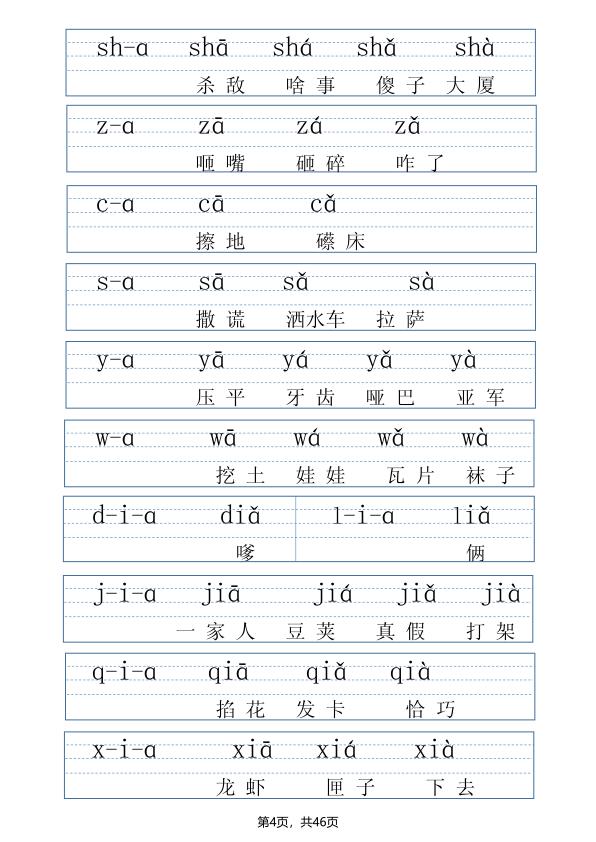 sh-ɑ shā shá shǎ shà
杀 敌 啥 事 傻 子 大 厦
z-ɑ zā zá zǎ
咂 嘴 砸 碎 咋 了
c-ɑ cā cǎ
擦 地 礤 床
s-ɑ sā sǎ sà
撒 谎 洒水车 拉 萨
y-ɑ yā yá yǎ yà
压 平 牙 齿 哑 巴 亚 军
w-ɑ wā wá wǎ wà
挖 土 娃 娃 瓦 片 袜 子
d-i-ɑ diǎ l-i-ɑ liǎ
嗲 俩
j-i-ɑ jiā jiá jiǎ jià
一 家 人 豆 荚 真 假 打 架
q-i-ɑ qiā qiǎ qià
掐 花 发 卡 恰 巧
x-i-ɑ xiā xiá xià
龙 虾 匣 子 下 去
第4页，共46页